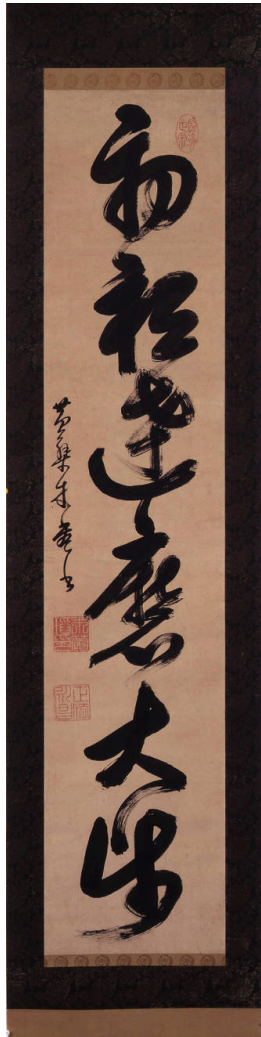 初祖達磨大師
黄檗木菴書